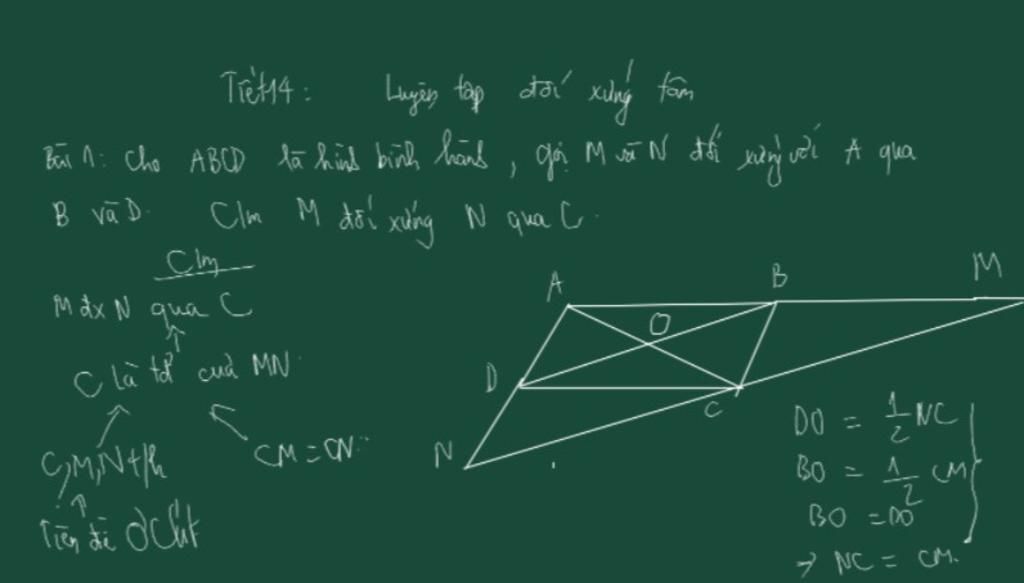 Tiết 14: Luyện tập đối xứng tâm
Bài 1: Cho ABCD là hình bình hành, gọi M và N đối xứng với A qua
B và D. C/m M đối xứng N qua C.
C/m
M đx N qua C
C là tđ của MN
C, M, N t/h
CM = CN
Tiên đề ơclit
A
B
M
O
D
C
N
DO = 1/2 NC
BO = 1/2 CM
BO = DO
→ NC = CM.